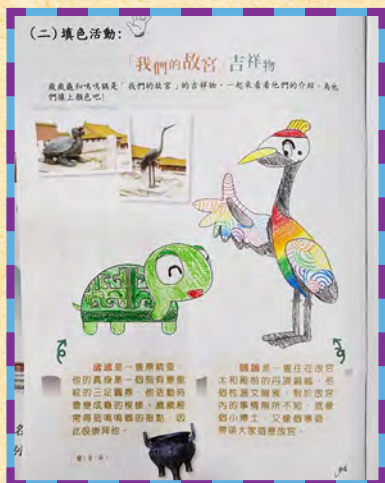 (二)填色活動:
「我們的故宮」吉祥物
歲歲龜和鳴鳴鶴是「我們的故宮」的吉祥物,一起來看看他們的介紹,為他
們填上顏色吧!
歲歲是一隻鼎精靈,
他的真身是一個飾有
紋的三足圓鼎,他活動時
會變成龜的模樣。歲歲經
常得到鳴鳴鶴的指點,因
此很崇拜他。
鳴鳴是一隻住在故宮
太和殿前的丹頂鶴,他
個性溫文爾雅,對於故宮
內的事情無所不知,就像
個小博士,又像個導遊,
帶領大家遊歷故宮。